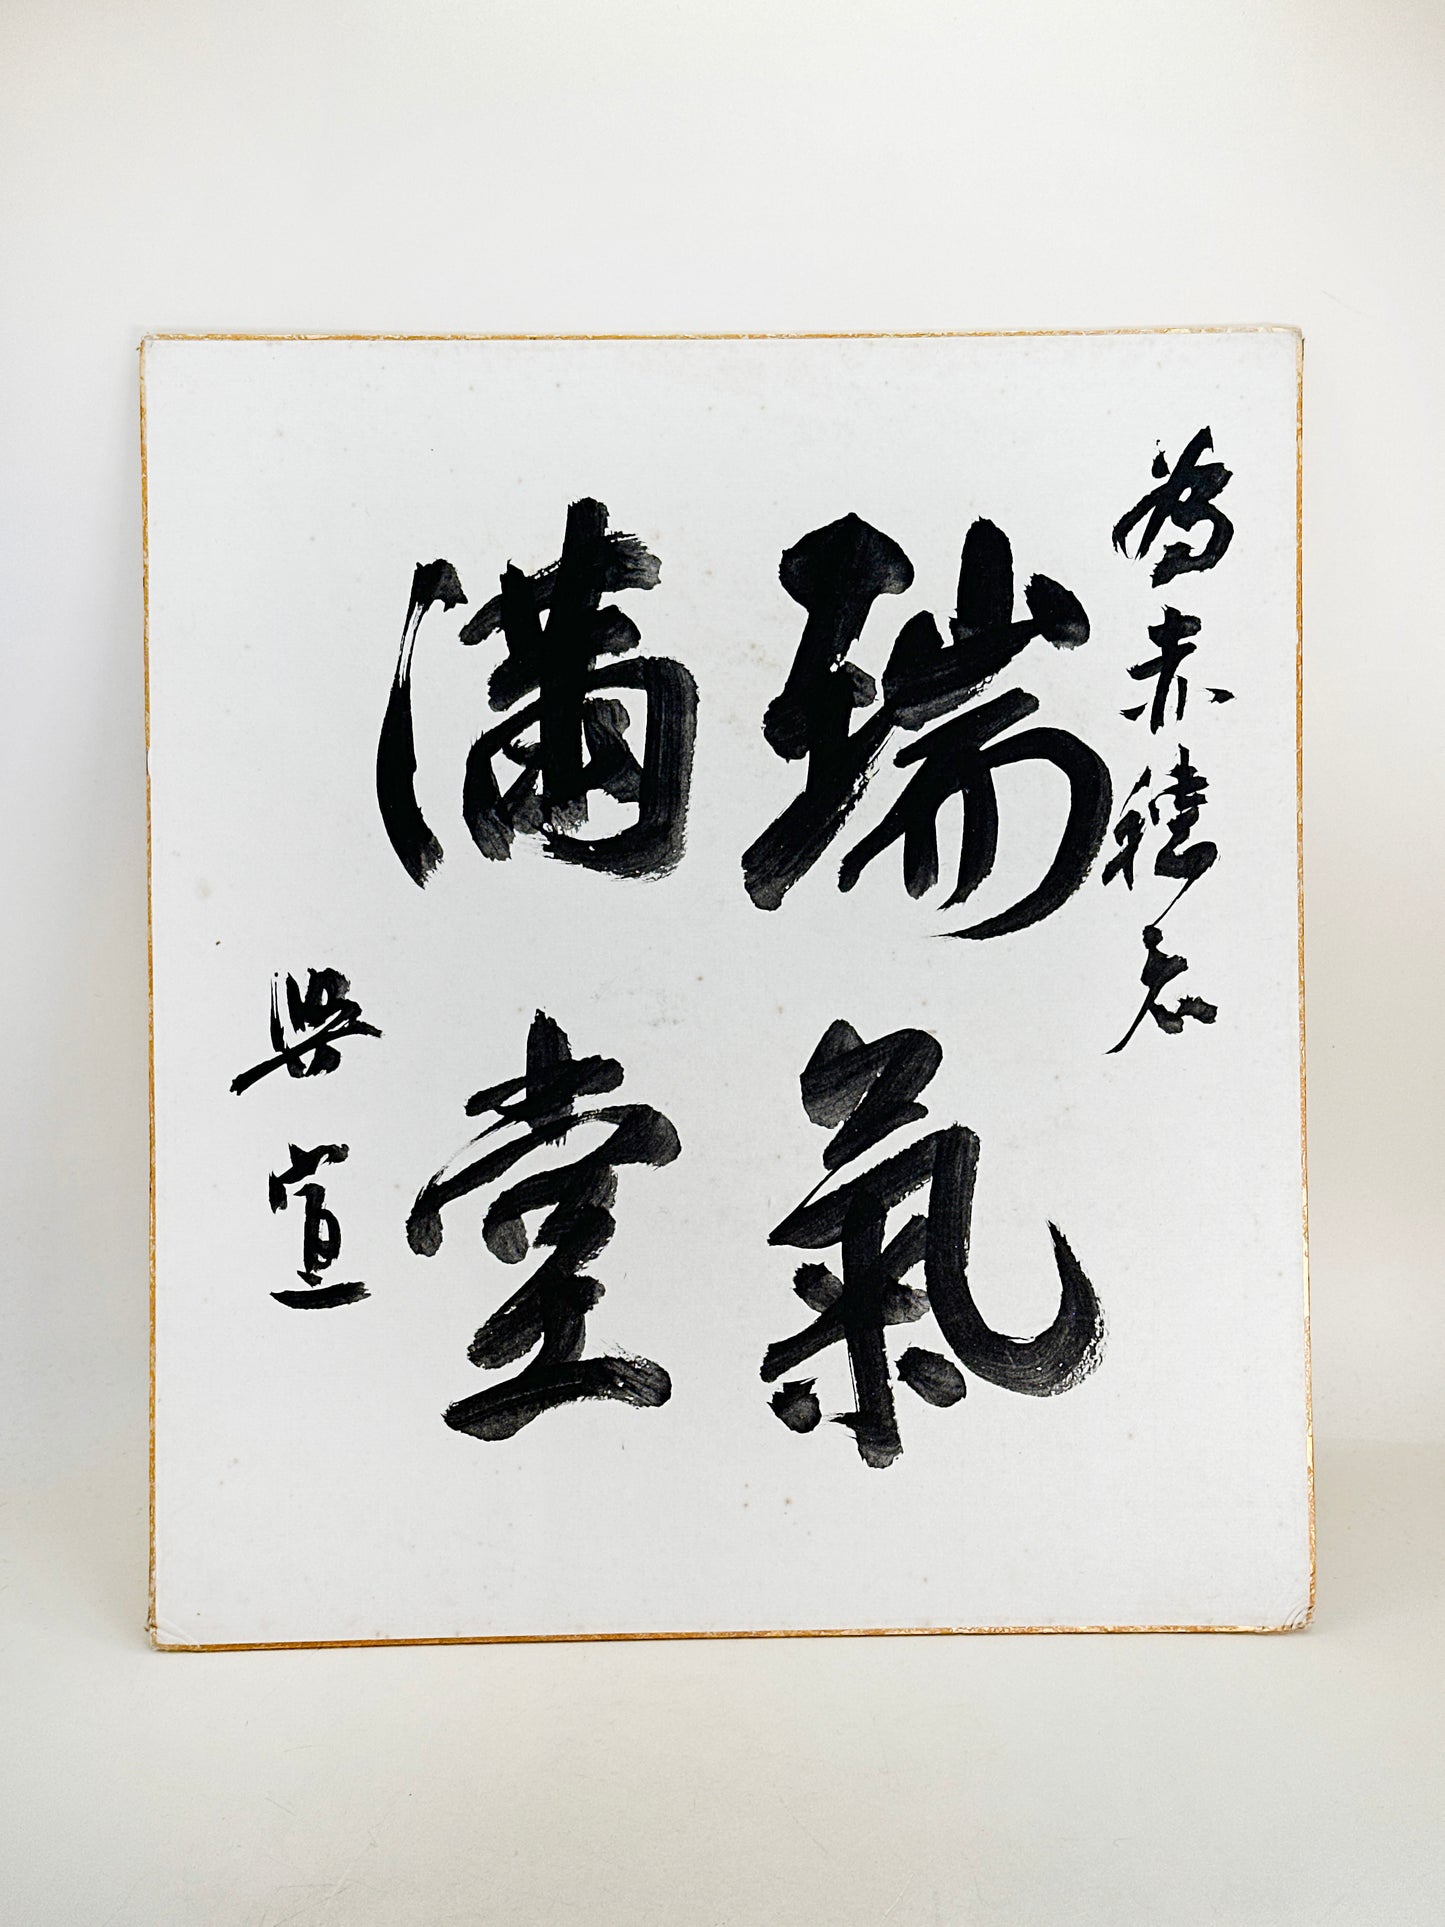 為赤穂君
瑞氣
満堂
宣